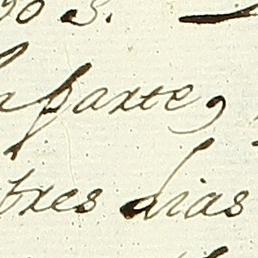 a parte,
tres dias